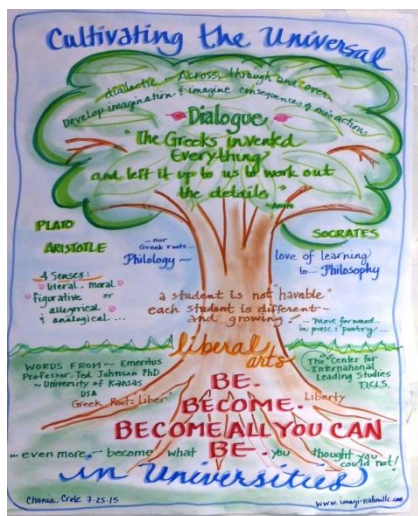 Cultivating the Universal
dialectic – Across, through and over
Develop imagination & imagine consequences of one's actions
Dialogue
"The Greeks invented
Everything
and left it up to us to work out
the details"
PLATO
ARISTOTLE
SOCRATES
...our
Greek roots...
Philology ~
love of learning
to... Philosophy
4 Senses:
literal, moral
figurative or
allegorical
& analogical...
a student is not "havable"
each student is different ~
and growing.
...move forward...
by prose & "poetry"...
liberal arts
WORDS FROM ~ Emeritus
Professor, Ted Johnson PhD
~ University of Kansas
USA
Greek Root: Liber
The Center for
International
Leading Studies
TICLS.
Liberty
BE.
BECOME.
BECOME ALL YOU CAN
BE.
...even more, ~ become what you thought you
could not!
in Universities
Chania, Crete 7-25-15
www.imagi-nationllc.com